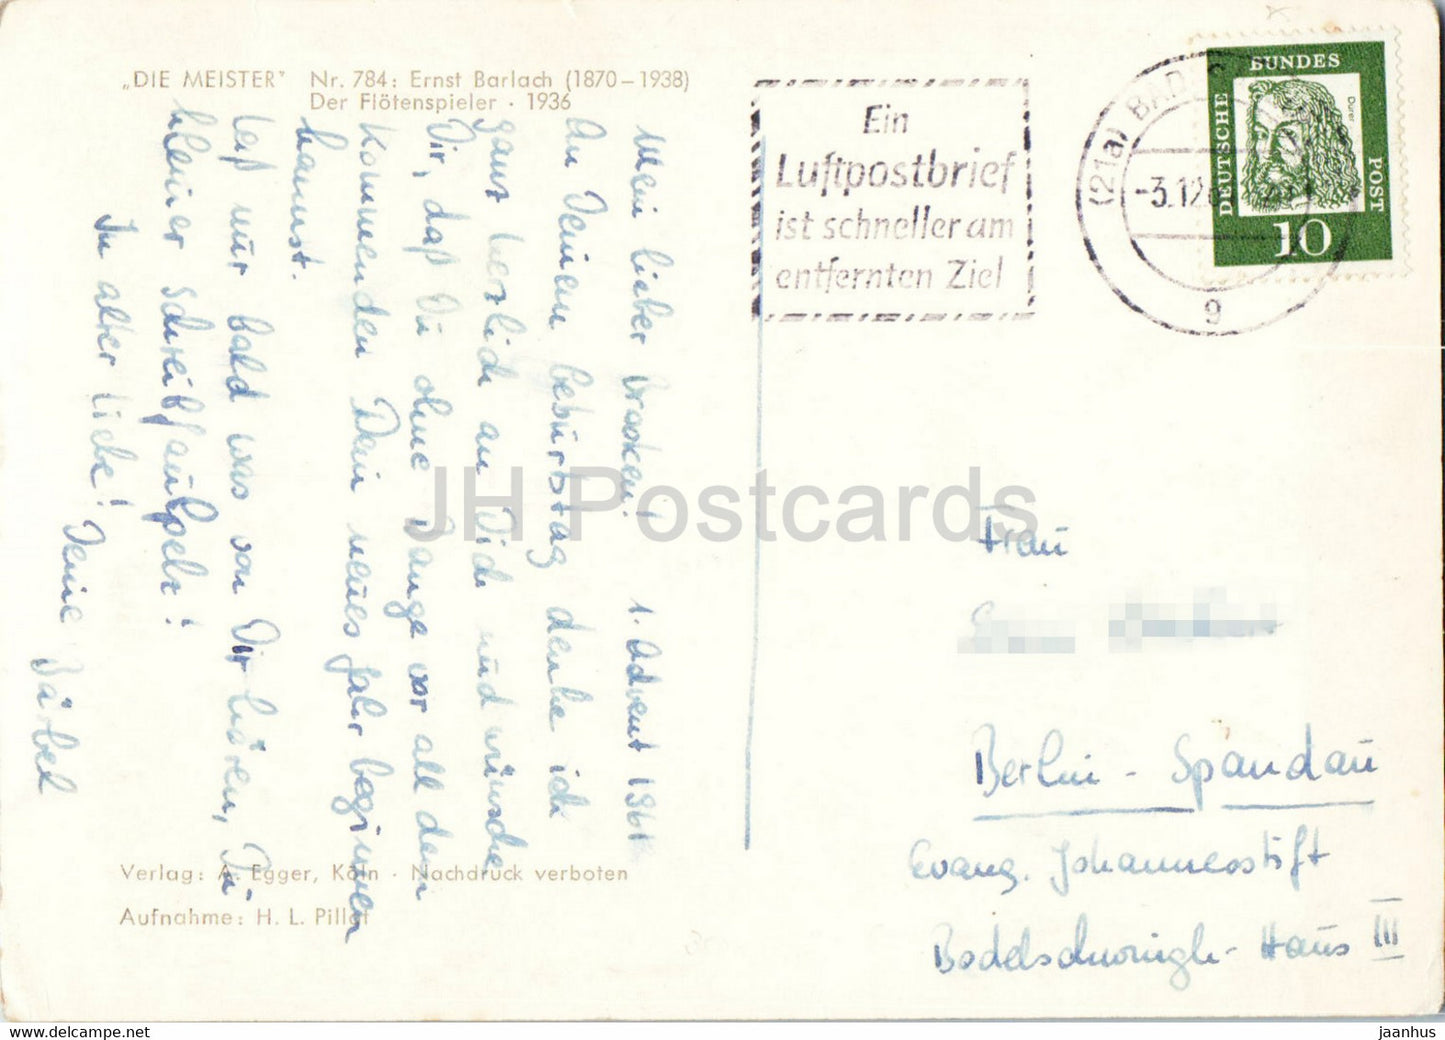 „DIE MEISTER" Nr. 784: Ernst Barlach (1870–1938)
Der Flötenspieler · 1936
Ein
Luftpostbrief
ist schneller am
entfernten Ziel
(21a) BAD
-3.12.6
g
BUNDES
DEUTSCHE
POST
Dürer
10
1. Advent 1961
Mein lieber
An Deinem Geburtstag denke ich
ganz herzlich an Dich und wünsche
Dir, daß Du ohne Bange vor all dem
Kommenden Dein neues Jahr beginnen
kannst.
Laß nur bald was von Dir hören, Du
kleiner Schreibfaulpelz!
In alter Liebe!
Deine Bärbel
Frau
Berlin - Spandau
Evang. Johannesstift
Bodelschwingh-Haus III
Verlag: A. Egger, Köln · Nachdruck verboten
Aufnahme: H. L. Pillat
JH Postcards
www.delcampe.net
jaanhus